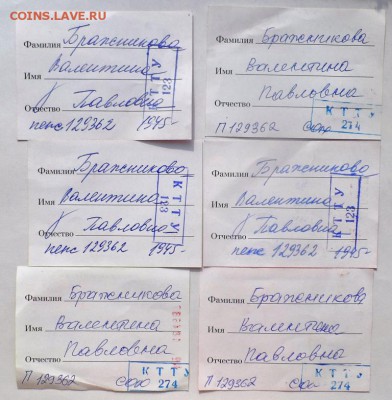 COINS.LAVE.RU
Фамилия Бражникова
Имя Валентина
Отчество Павловна
пенс 129362 1945-
КТТУ
123
Фамилия Бражникова
Имя Валентина
Отчество Павловна
П 129362
КТТУ
274
Фамилия Бражникова
Имя Валентина
Отчество Павловна
пенс 129362 1945-
КТТУ
123
Фамилия Бражникова
Имя Валентина
Отчество Павловна
пенс 129362 1945-
КТТУ
123
Фамилия Бражникова
Имя Валентина
Отчество Павловна
П 129362
КТТУ
274
Фамилия Бражникова
Имя Валентина
Отчество Павловна
П 129362
КТТУ
274